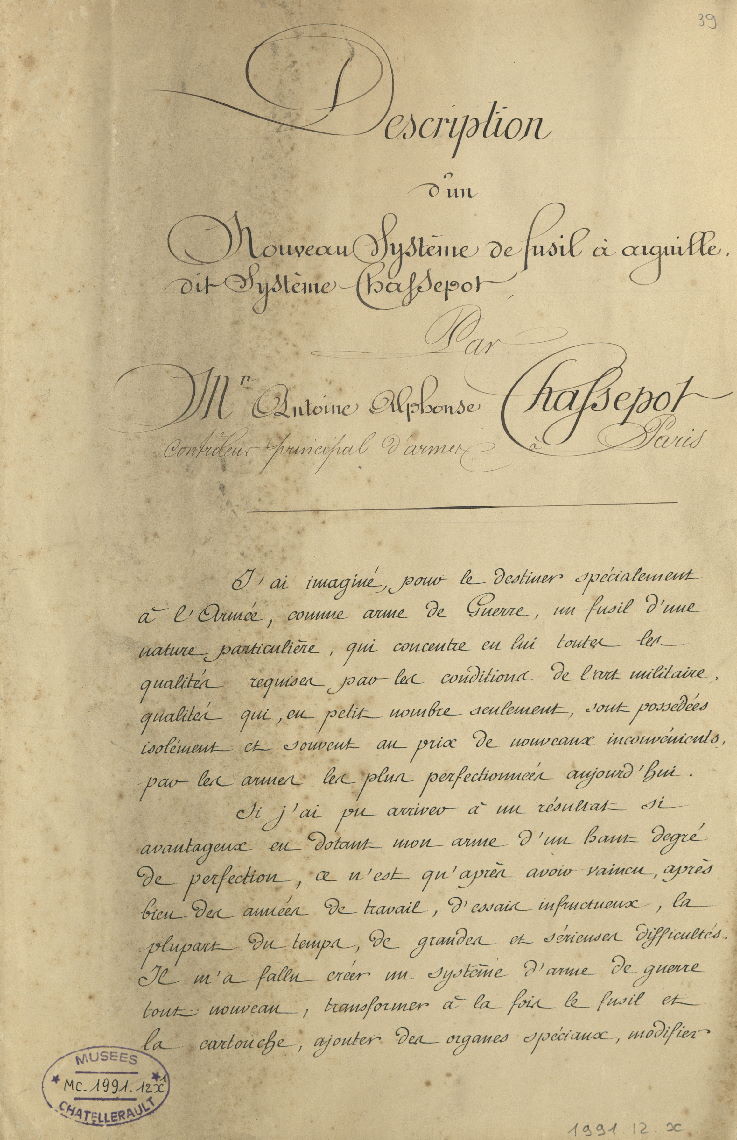 39
Description
d'un
Nouveau Système de fusil à aiguille.
dit Système Chassepot
Par
Mr Antoine Alphonse Chassepot
Contrôleur principal d'armes à Paris
J'ai imaginé, pour le destiner spécialement
à l'Armée, comme arme de Guerre, un fusil d'une
nature particulière, qui concentre en lui toutes les
qualités requises par les conditions de l'art militaire,
qualités qui, en petit nombre seulement, sont possédées
isolément et souvent au prix de nouveaux inconvénients,
par les armes les plus perfectionnées aujourd'hui.
Si j'ai pu arriver à un résultat si
avantageux en dotant mon arme d'un haut degré
de perfection, ce n'est qu'après avoir vaincu, après
bien des années de travail, d'essais infructueux, la
plupart du temps, de grandes et sérieuses difficultés.
Il m'a fallu créer un système d'arme de guerre
tout nouveau, transformer à la fois le fusil et
la cartouche, ajouter des organes spéciaux, modifier
MUSEES
MC. 1991. 12 x
CHATELLERAULT
1991. 12. x